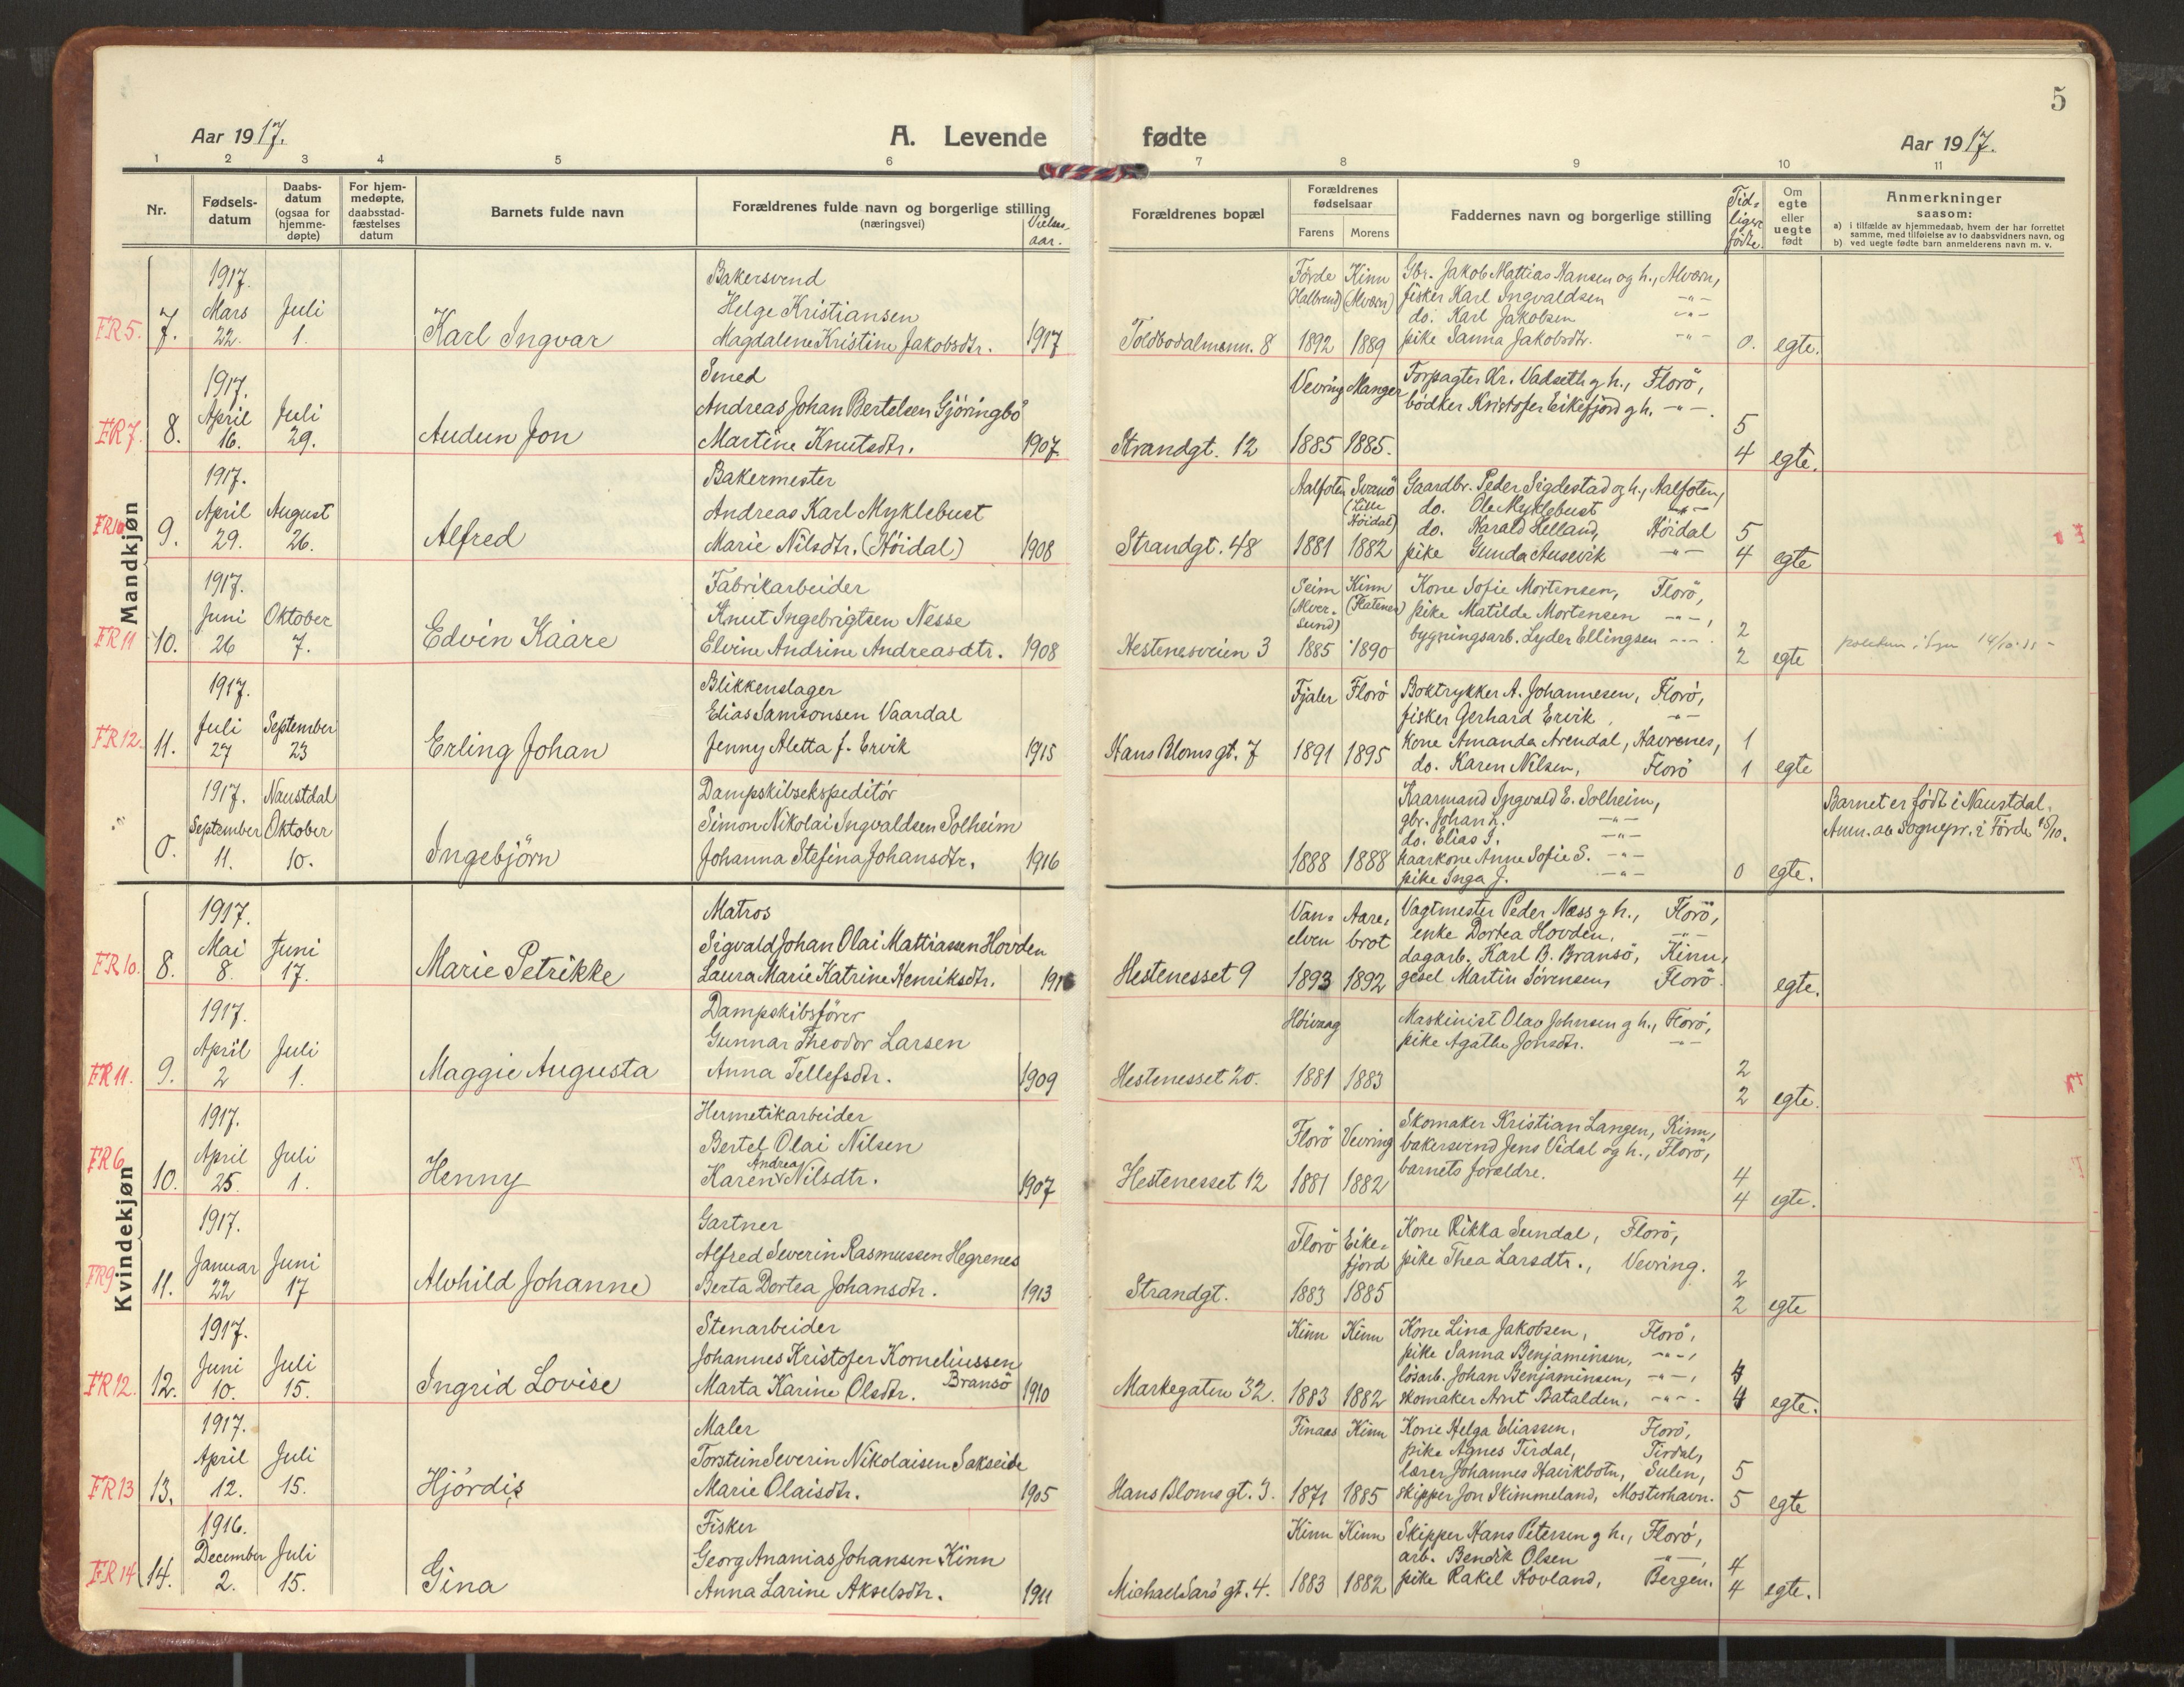 5
Aar 1917.
A. Levende fødte
Aar 1917.
1 2 3 4 5 6 7 8 9 10 11
Nr.
Fødsels-
datum
Daabs-
datum
(ogsaa for
hjemme-
døpte)
For hjem-
medøpte,
daabsstad-
fæstelses
datum
Barnets fulde navn
Forældrenes fulde navn og borgerlige stilling
(næringsvei)
Vielses-
aar.
Forældrenes bopæl
Forældrenes
fødselsaar
Farens Morens
Faddernes navn og borgerlige stilling
Tid-
ligere
fødte
Om
egte
eller
uegte
født
Anmerkninger
saasom:
a) i tilfælde av hjemmedaab, hvem der har forrettet
samme, med tilføielse av to daabsvidners navn, og
b) ved uegte fødte barn anmelderens navn m. v.
Mandkjøn
FR5. 7.
1917.
Mars
22.
Juli
1.
Karl Ingvar
Bakersvend
Helge Kristiansen
Magdalene Kristine Jakobsdtr. 1917
Toldbodalmenn. 8
Førde (Halbrend) 1892
Kinn (Alværn) 1889
Gbr. Jakob Mattias Hansen og h., Alværn,
fisker Karl Ingvaldsen -"-
do. Karl Jakobsen -"-
pike Sanna Jakobsdtr. -"-
0. egte.
FR7. 8.
1917.
April
16.
Juli
29.
Audun Jon
Smed
Andreas Johan Bertelsen Gjöringbö
Martine Knutsdtr. 1907
Strandgt. 12
Vevring 1885
Manger 1885.
Forpagter Kr. Vadseth g h., Florö,
bödker Kristofer Eikefjord g h. -"-.
5
4 egte.
FR10 9.
1917.
April
29.
August
26.
Alfred
Bakermester
Andreas Karl Myklebust
Marie Nilsdtr. (Höidal) 1908
Strandgt. 48
Aalfoten 1881
Svanö (Lille Höidal) 1882
Gaardbr. Peder Sigdestad og h., Aalfoten,
do. Ole Myklebust -"-
do. Harald Helland, Höidal
pike Gunda Ausevik -"-
5
4 egte
FR11 10.
1917.
Juni
26
Oktober
7.
Edvin Kaare
Fabrikarbeider
Knut Ingebrigtsen Nesse
Elvine Andrine Andreasdtr. 1908
Hestenesveien 3
Seim (Alver-sund) 1885
Kinn (Flatenes) 1890
Kone Sofie Mortensen, Florö,
pike Matilde Mortensen -"-,
bygningsarb. Lyder Ellingsen -"-.
2
2 egte
FR12. 11.
1917.
Juli
27
September
23
Erling Johan
Blikkenslager
Elias Samsonsen Vaardal
Jenny Aletta J. Ervik 1915
Hans Bloms gt. 7
Fjaler 1891
Florö 1895
Boktrykker A. Johannesen, Florö,
fisker Gerhard Ervik, -"-
Kone Amanda Arendal, Havrenes,
do. Karen Nilsen, Florö
1
1 egte
0.
1917.
September
11.
Naustdal
Oktober
10.
Ingebjörn
Dampskibsekspeditör
Simon Nikolai Ingvaldsen Solheim
Johanna Stefina Johansdtr. 1916
1888 1888
Kaarmand Ingvald E. Solheim,
gbr. Johan L. -"-
do. Elias I. -"-
kaarkone Anne Sofie S. -"-
pike Inga J. -"-
0 egte.
Barnet er født i Naustdal.
Anm. av sognepr. i Förde 18/10.
Kvindekjøn
FR10. 8.
1917.
Mai
8.
Juni
17.
Marie Petrikke
Matros
Sigvald Johan Olai Mattiassen Hovden
Laura Marie Katrine Henriksdtr. 1916
Hestenesset 9
Van-elven 1893
Aare-brot 1892
Vagtmester Peder Næss g h., Florö,
enke Dortea Hovden, -"-
dagarb. Karl B. Bransö, Kinn,
gesel Martin Sörensen, Florö.
egte.
FR11. 9.
1917.
April
2
Juli
1.
Maggie Augusta
Dampskibsförer
Gunnar Theodor Larsen
Anna Tellefsdtr. 1909
Hestenesset 20.
Höivaag
1881 1883
Maskinist Olav Johnsen g h., Florö,
pike Agathe Jonsdtr. -"-
2
2 egte.
FR6 10.
1917.
April
25.
Juli
1.
Henny
Hermetikarbeider
Bertel Olai Nilsen
Karen Andrea Nilsdtr. 1907
Hestenesset 12
Florö 1881
Vevring 1882
Skomaker Kristian Langen, Kinn,
bakersvend Jens Vidal og h., Florö,
barnets forældre.
4
4 egte.
FR9 11.
1917.
Januar
22
Juni
17
Alvhild Johanne
Gartner
Alfred Severin Rasmussen Hegrenes
Berta Dortea Johansdtr. 1913
Strandgt.
Florö 1883
Eike-fjord 1885
Kone Rikka Sundal, Florö,
pike Thea Larsdtr., Vevring.
2
2 egte
FR12. 12.
1917.
Juni
10.
Juli
15.
Ingrid Lovise
Stenarbeider
Johannes Kristofer Korneliussen Bransö
Marta Karine Olsdtr. 1910
Markegaten 32.
Kinn 1883
Kinn 1882
Kone Lina Jakobsen, Florö,
pike Sanna Benjaminsen, -"-,
lösarb. Johan Benjaminsen, -"-,
skomaker Arnt Batalden, -"-.
4
4 egte.
FR13 13.
1917.
April
12.
Juli
15.
Hjördis
Maler
Torstein Severin Nikolaisen Sakseide
Marie Olaisdtr. 1905
Hans Bloms gt. 3.
Finaas 1871
Kinn 1885
Kone Helga Eliassen, Florö,
pike Agnes Tirdal, Tirdal,
lærer Johannes Havikbotn, Sulen,
skipper Jon Skimmeland, Mosterhavn.
5
5 egte
FR14 14.
1916.
December
2.
Juli
15.
Gina
Fisker
Georg Ananias Johansen Kinn
Anna Larine Akselsdtr. 1911
Michael Sars gt. 4.
Kinn 1883
Kinn 1882
Skipper Hans Petersen g h., Florö,
arb. Bendik Olsen -"-,
pike Rakel Hovland, Bergen.
4
4 egte.